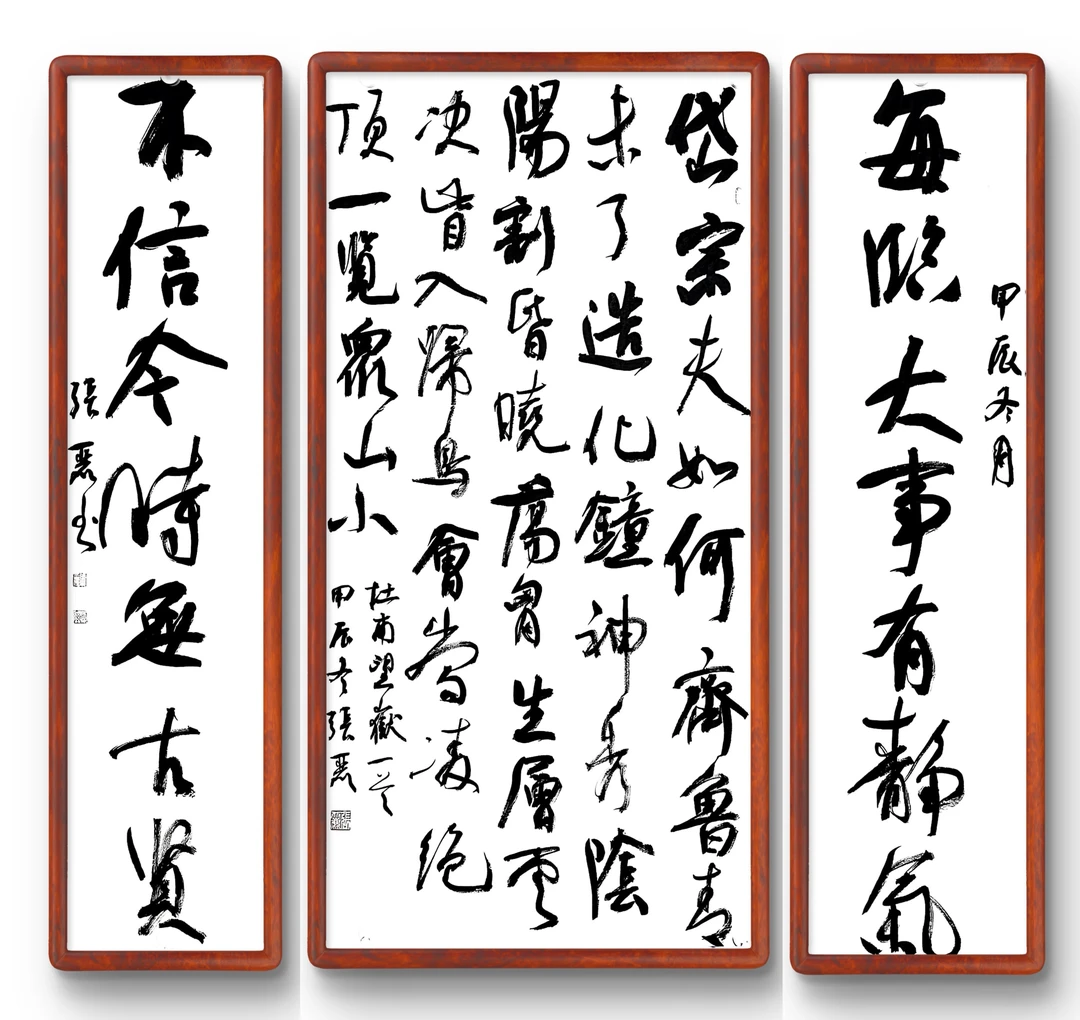 每臨大事有靜氣
甲辰冬月
岱宗夫如何齊魯青
未了造化鐘神秀陰
陽割昏曉蕩胷生層雲
決眥入歸鳥會當凌絕
頂一覽眾山小
杜甫望嶽一首
甲辰冬張
不信今時無古賢
張